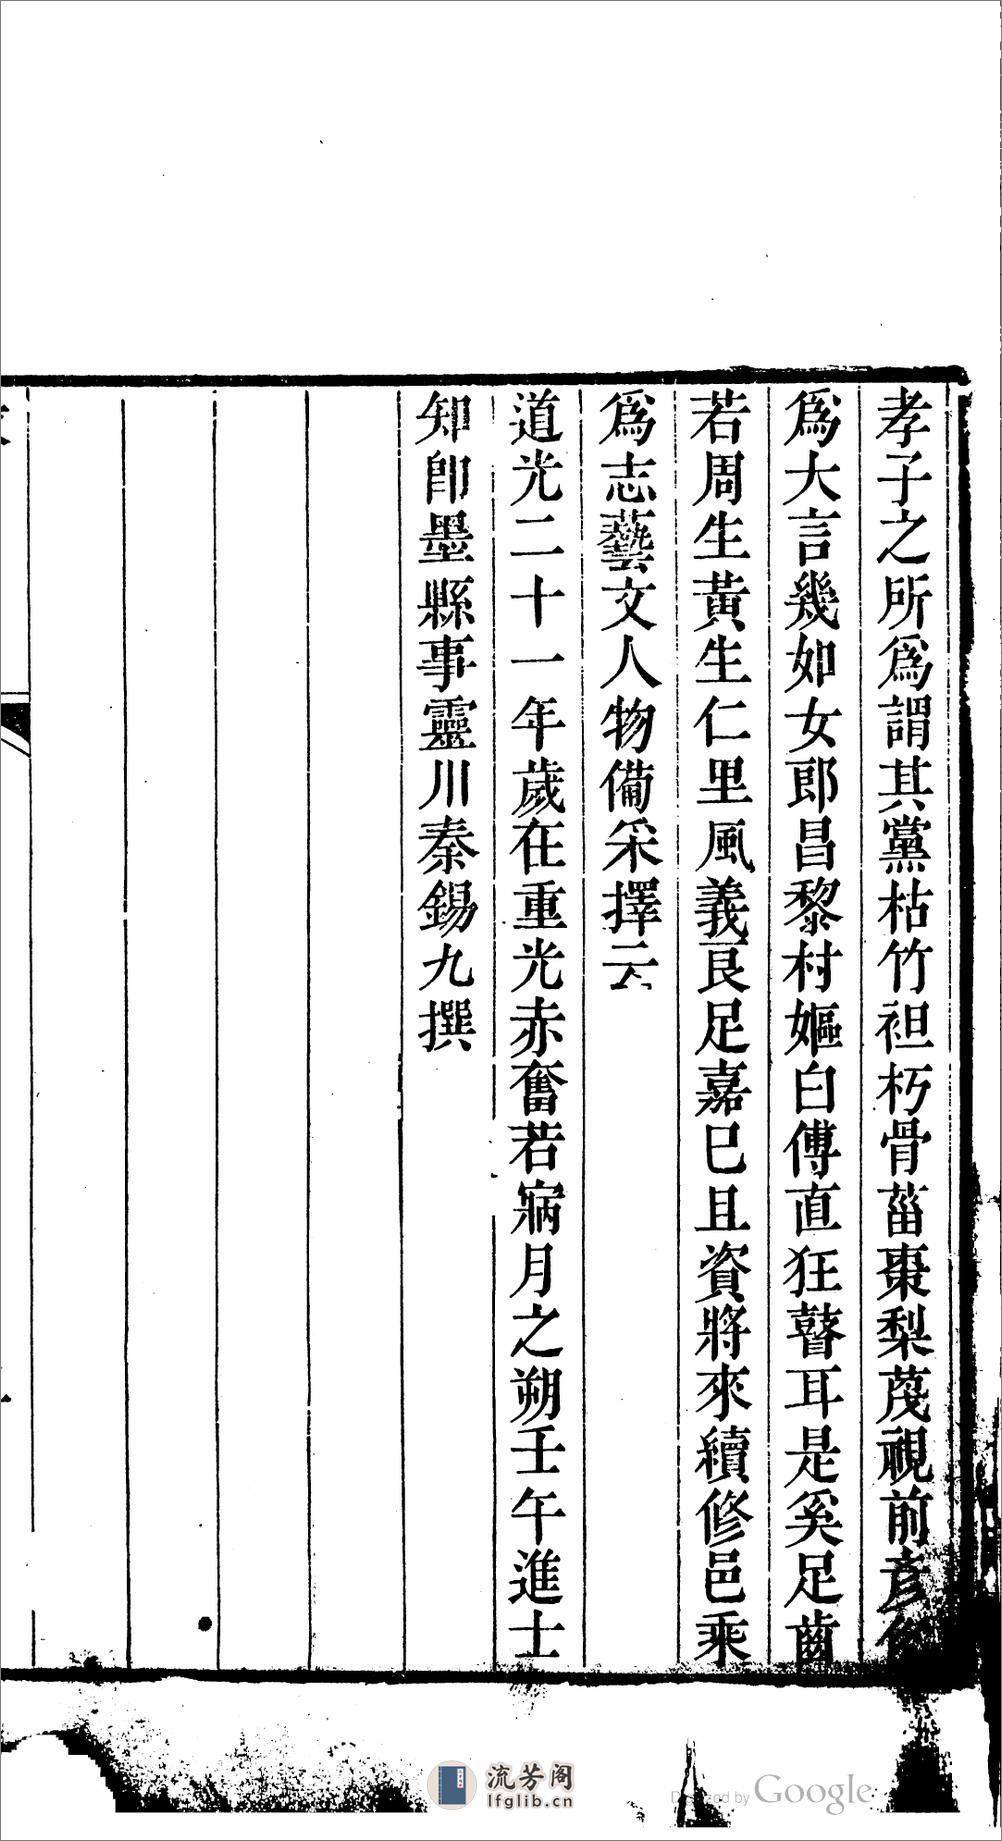 孝子之所爲謂其黨枯竹袒朽骨菑棗梨蔑視前彥
爲大言幾如女郎昌黎村嫗白傅直狂瞽耳是奚足齒
若周生黃生仁里風義良足嘉巳且資將來續修邑乘
爲志藝文人物備采擇云
道光二十一年歲在重光赤奮若寎月之朔壬午進士
知卽墨縣事靈川秦錫九撰
流芳阁
lfglib.cn
Digitized by Google